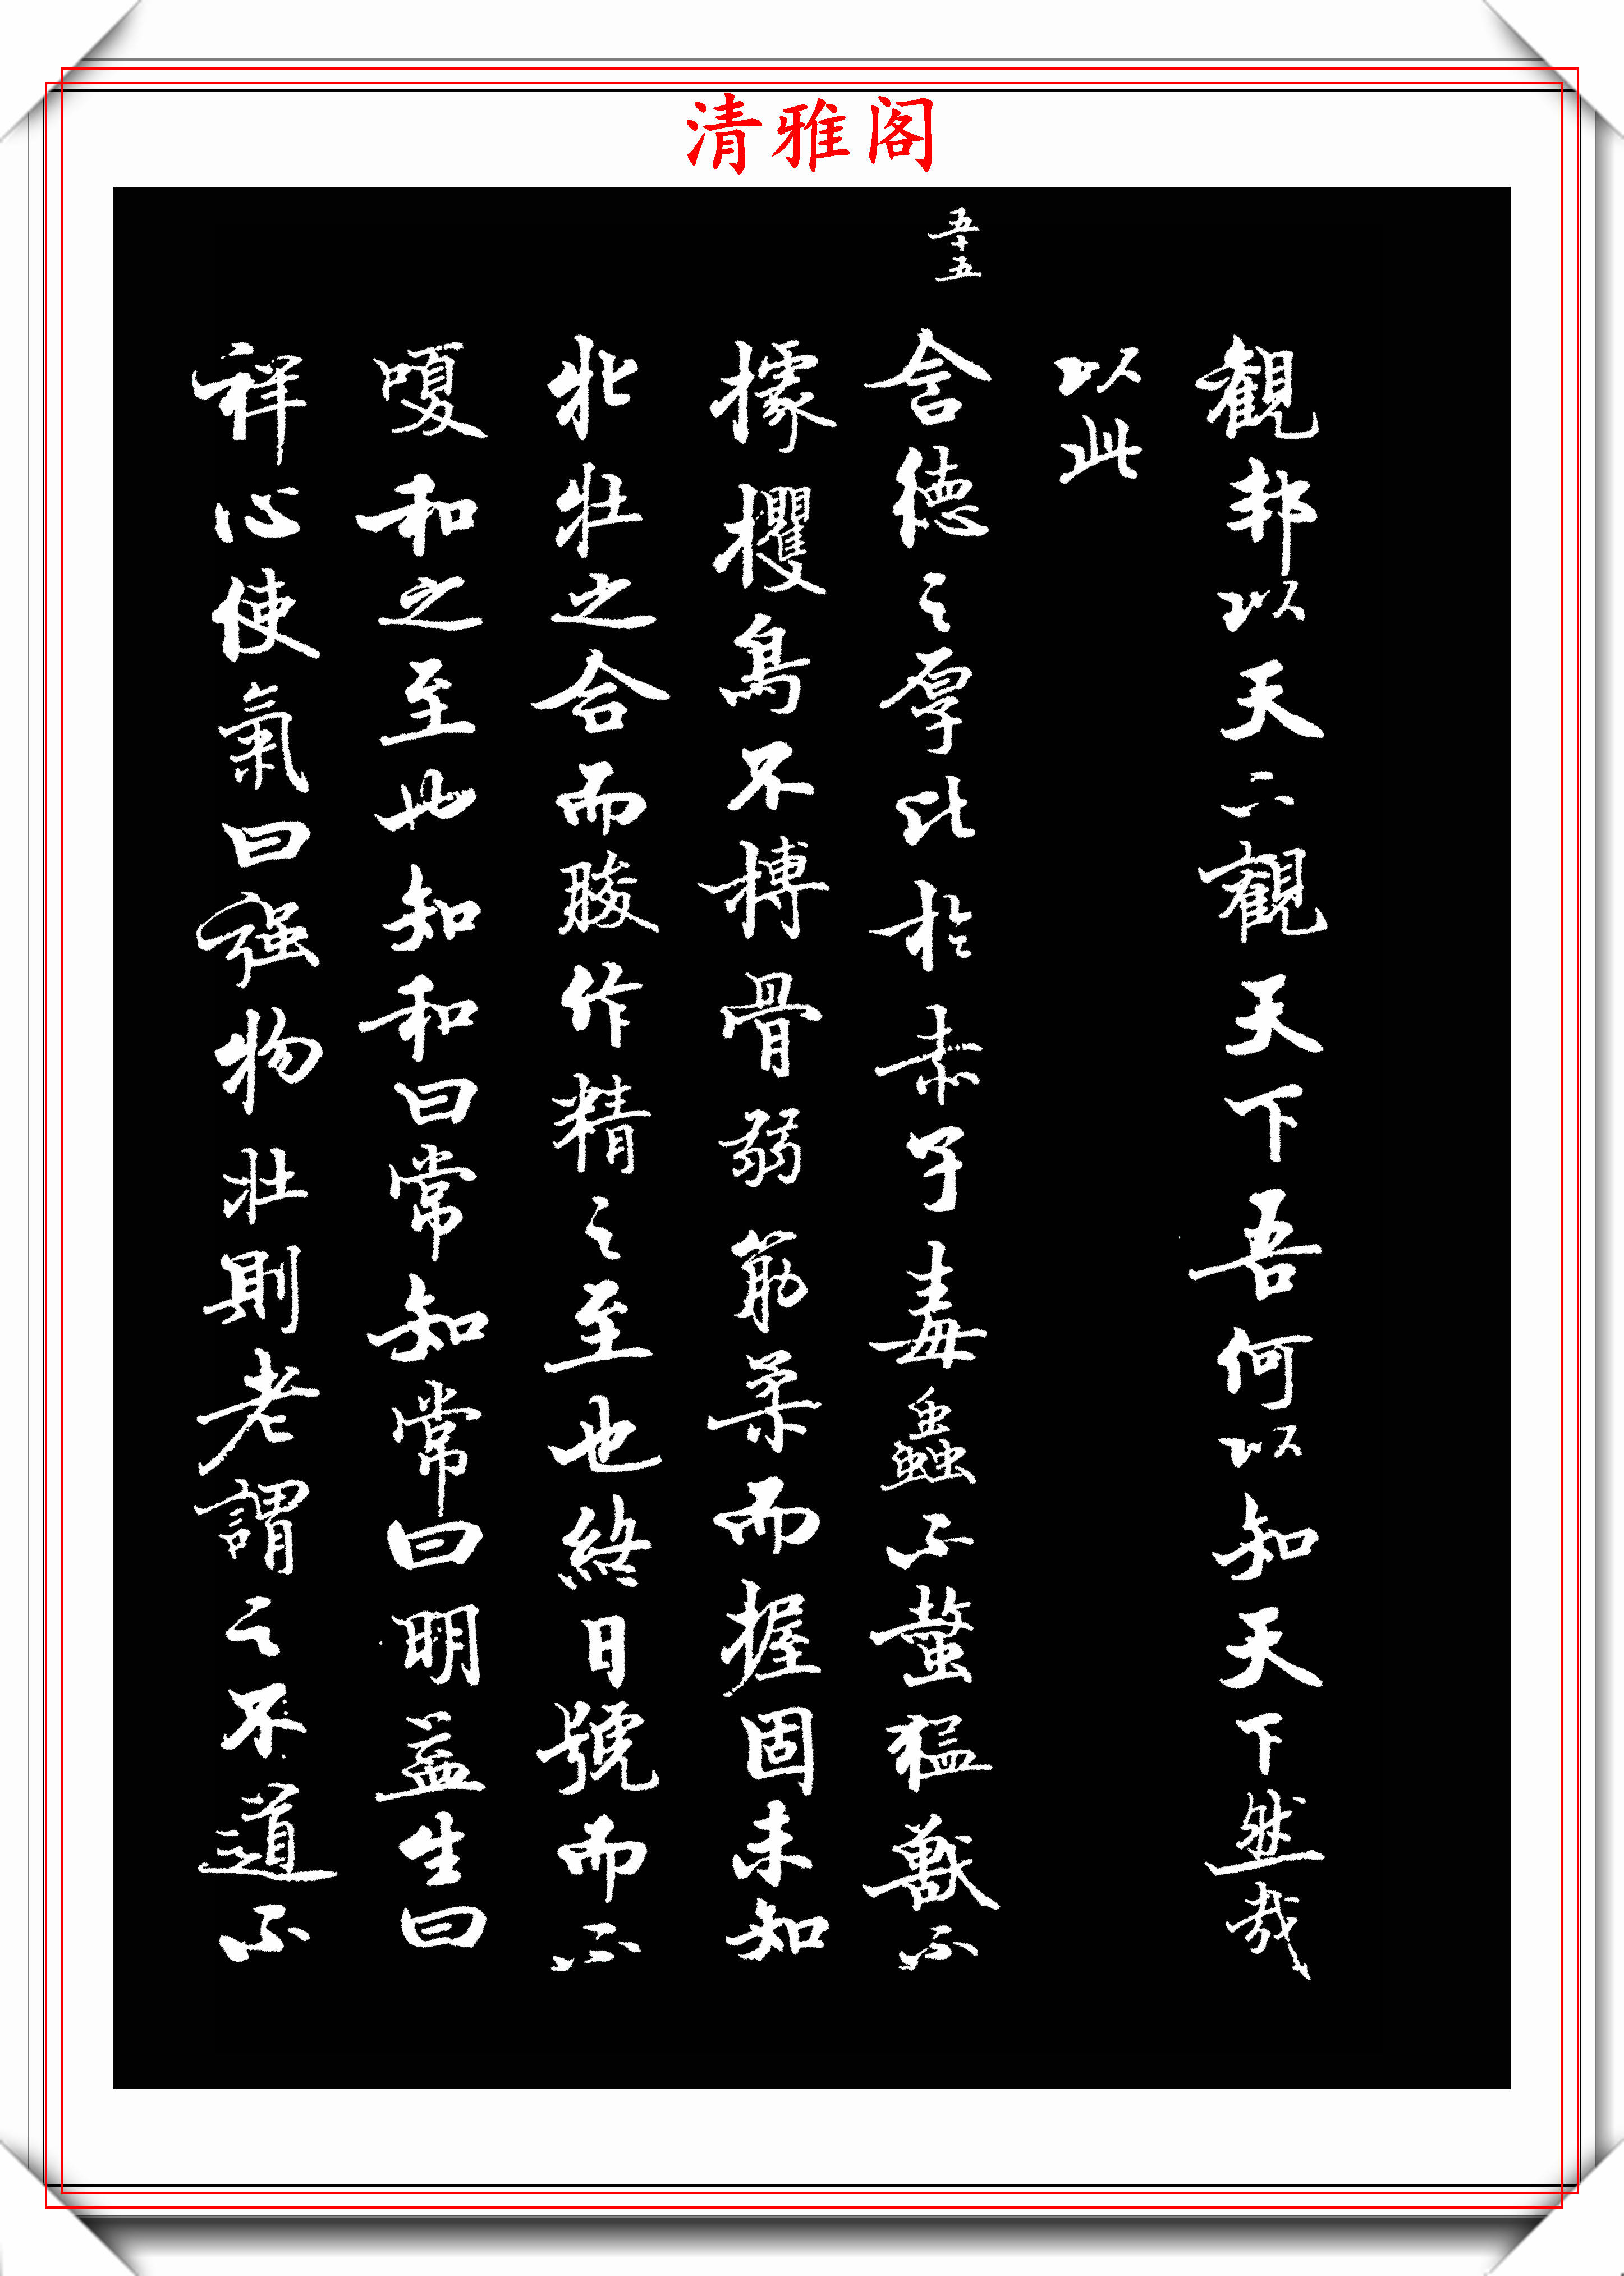 清雅阁
觀邦以天下觀天下吾何以知天下然哉
以此
五十五
含德之厚比於赤子毒蟲不螫猛獸不
據攫鳥不搏骨弱筋柔而握固未知
牝牡之合而朘作精之至也終日號而不
嗄和之至也知和曰常知常曰明益生曰
祥心使氣曰强物壯則老謂之不道不